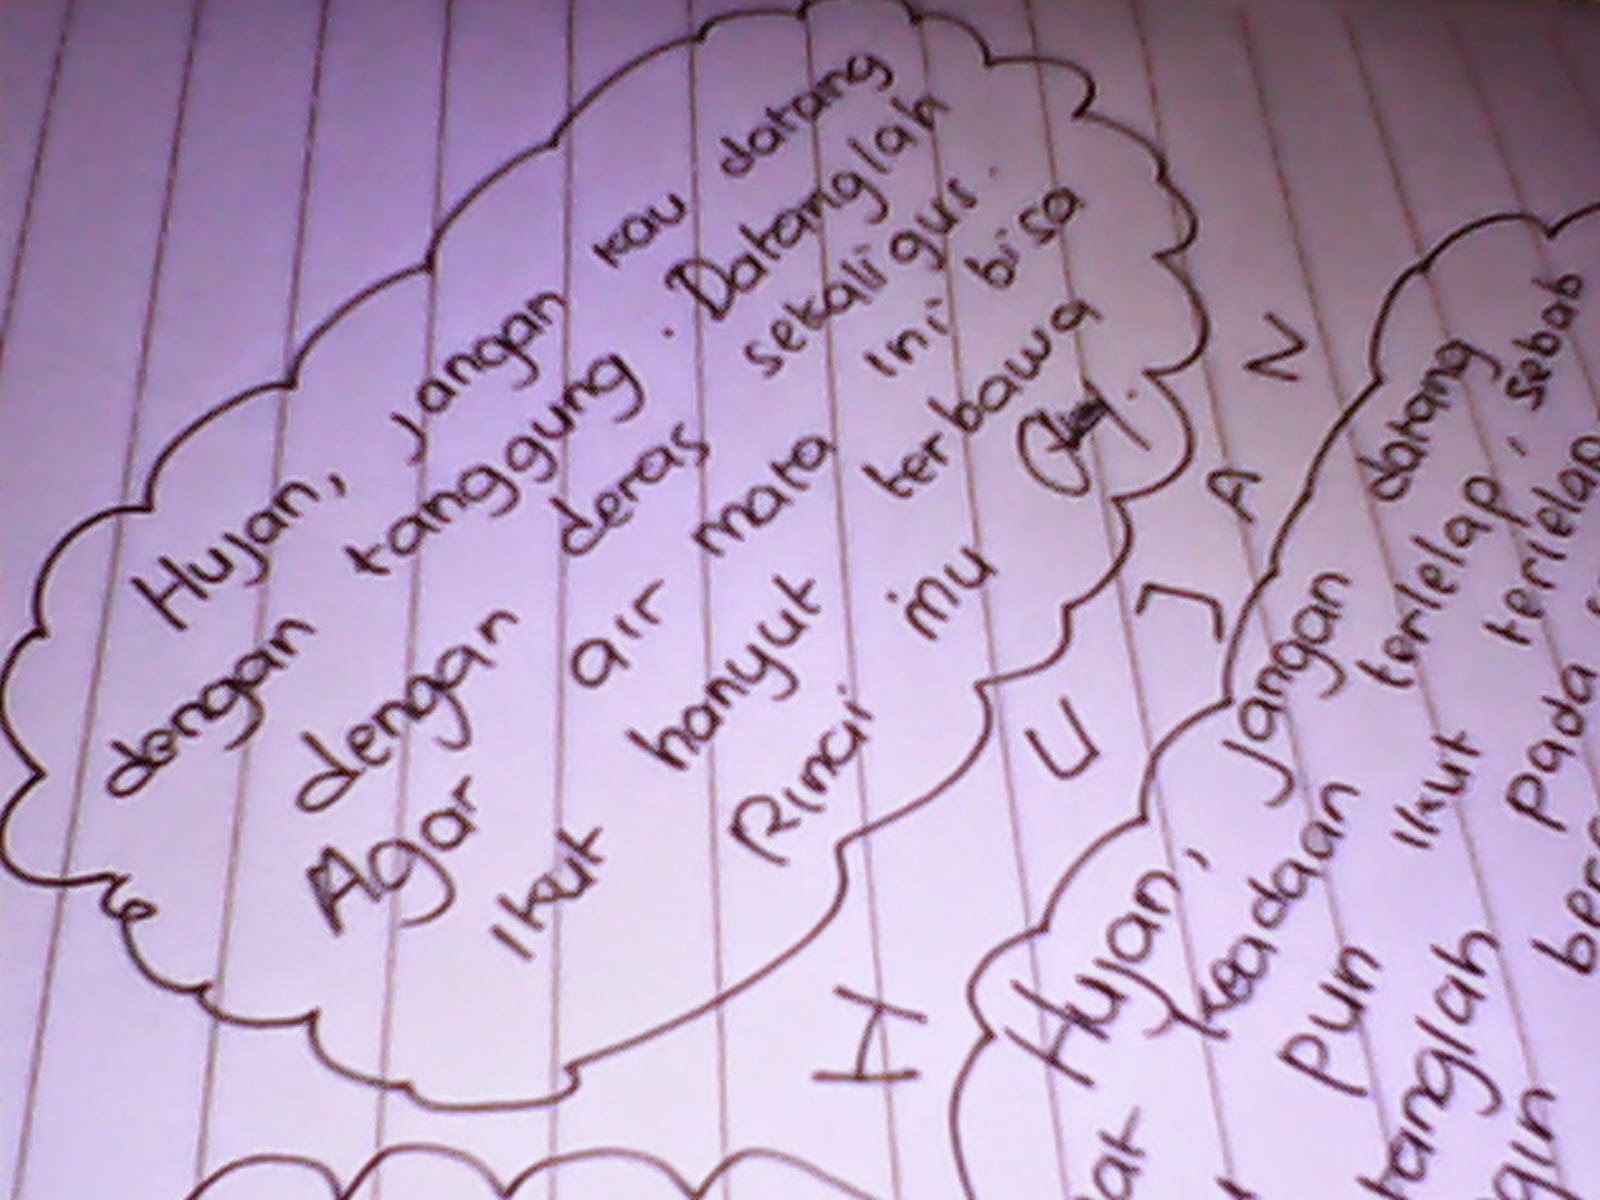 Hujan, jangan kau datang
dengan tanggung. Datanglah
dengan deras sekali gus.
Agar air mata ini bisa
Ikut hanyut terbawa
Rinai mu
H U J A N
Hujan, jangan datang
keadaan terlelap, sebab
pun ikut terlelap
pada